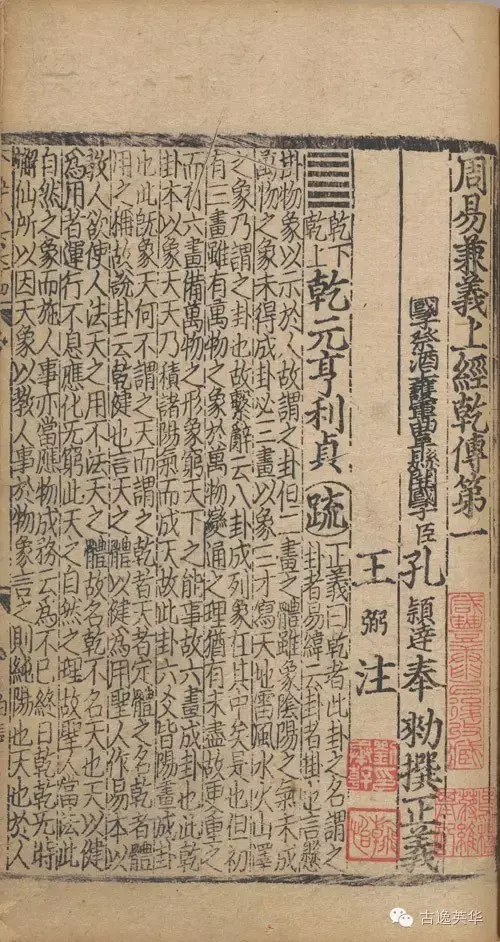 周易兼義上經乾傳第一
國子祭酒上護軍曲阜縣開國子臣孔穎達奉勑撰正義
王弼注
乾下乾上乾元亨利貞疏正義曰乾者此卦之名謂之
卦者易緯云卦者掛也言懸
掛物象以示於人故謂之卦但二畫之體雖象陰陽之氣未成
萬物之象未得成卦必三畫以象三才寫天地雷風水火山澤
之象乃謂之卦也故繫辭云八卦成列象在其中矣是也但初
有三畫雖有萬物之象於萬物變通之理猶有未盡故更重之
而六畫備萬物之形象窮天下之能事故六畫成卦也此乾
卦本以象天天乃積諸陽氣而成天故此卦六爻皆陽畫成卦
也此既象天何不謂之天而謂之乾者天者定體之名乾者體
用之稱故說卦云乾健也言天之體以健為用聖人作易本以
教人欲使人法天之用不法天之體故名乾不名天也天以健
為用者運行不息應化无窮此天之自然之理故聖人當法此
自然之象而施人事亦當應物成務云為不已終日乾乾无時
懈所以因天象以教人事於物象言之則純陽也天也於人
古逸英华